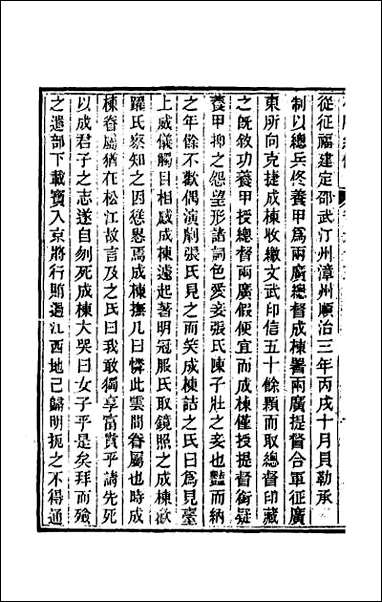 從征福建定邵武汀州漳州順治三年丙戌十月貝勒承
制以總兵佟養甲為兩廣總督成棟署兩廣提督合軍征廣
東所向克捷成棟收繳文武印信五十餘顆而取總督印藏
之既敘功養甲授總督兩廣假便宜而成棟僅授提督銜疑
養甲抑之怨望形諸詞色愛妾張氏陳子壯之妾也豔而納
之年餘不歡偶演劇張氏見之而笑成棟詰之氏曰為見臺
上威儀觸目相感成棟遽起著明冠服氏取鏡照之成棟歡
躍氏察知之因慫恿焉成棟撫几曰憐此雲間眷屬也時成
棟眷屬猶在松江故言及之氏曰我敢獨享富貴乎請先死
以成君子之志遂自刎死成棟大哭曰女子乎是矣拜而殮
之遣部下載寶入京將行賄過江西地已歸明扼之不得通